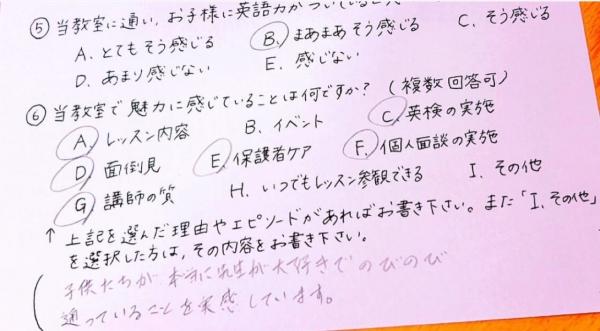 ⑤当教室に通い、お子様に英語力がついていると
A. とてもそう感じる　B. まあまあそう感じる　C. そう感じる
D. あまり感じない　E. 感じない
⑥当教室で魅力に感じていることは何ですか？（複数回答可）
A. レッスン内容　B. イベント　C. 英検の実施
D. 面倒見　E. 保護者ケア　F. 個人面談の実施
G. 講師の質　H. いつでもレッスン参観できる　I. その他
↑上記を選んだ理由やエピソードがあればお書き下さい。また「I. その他」
を選択した方は、その内容をお書き下さい。
子供たちが本当に先生が大好きでのびのび
通っていることを実感しています。